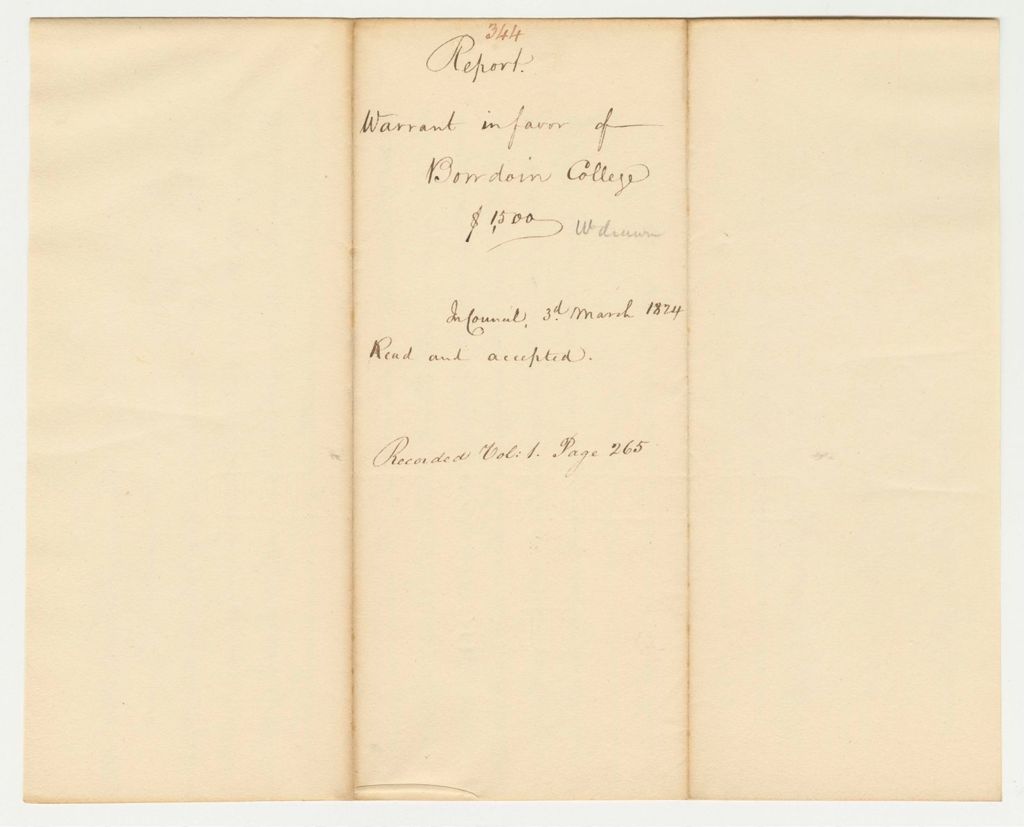 344
Report.
Warrant in favor of
Bowdoin College
$ 1,500 Wt drawn
In Council, 3.d March 1824
Read and accepted.
Recorded Vol: 1. Page 265